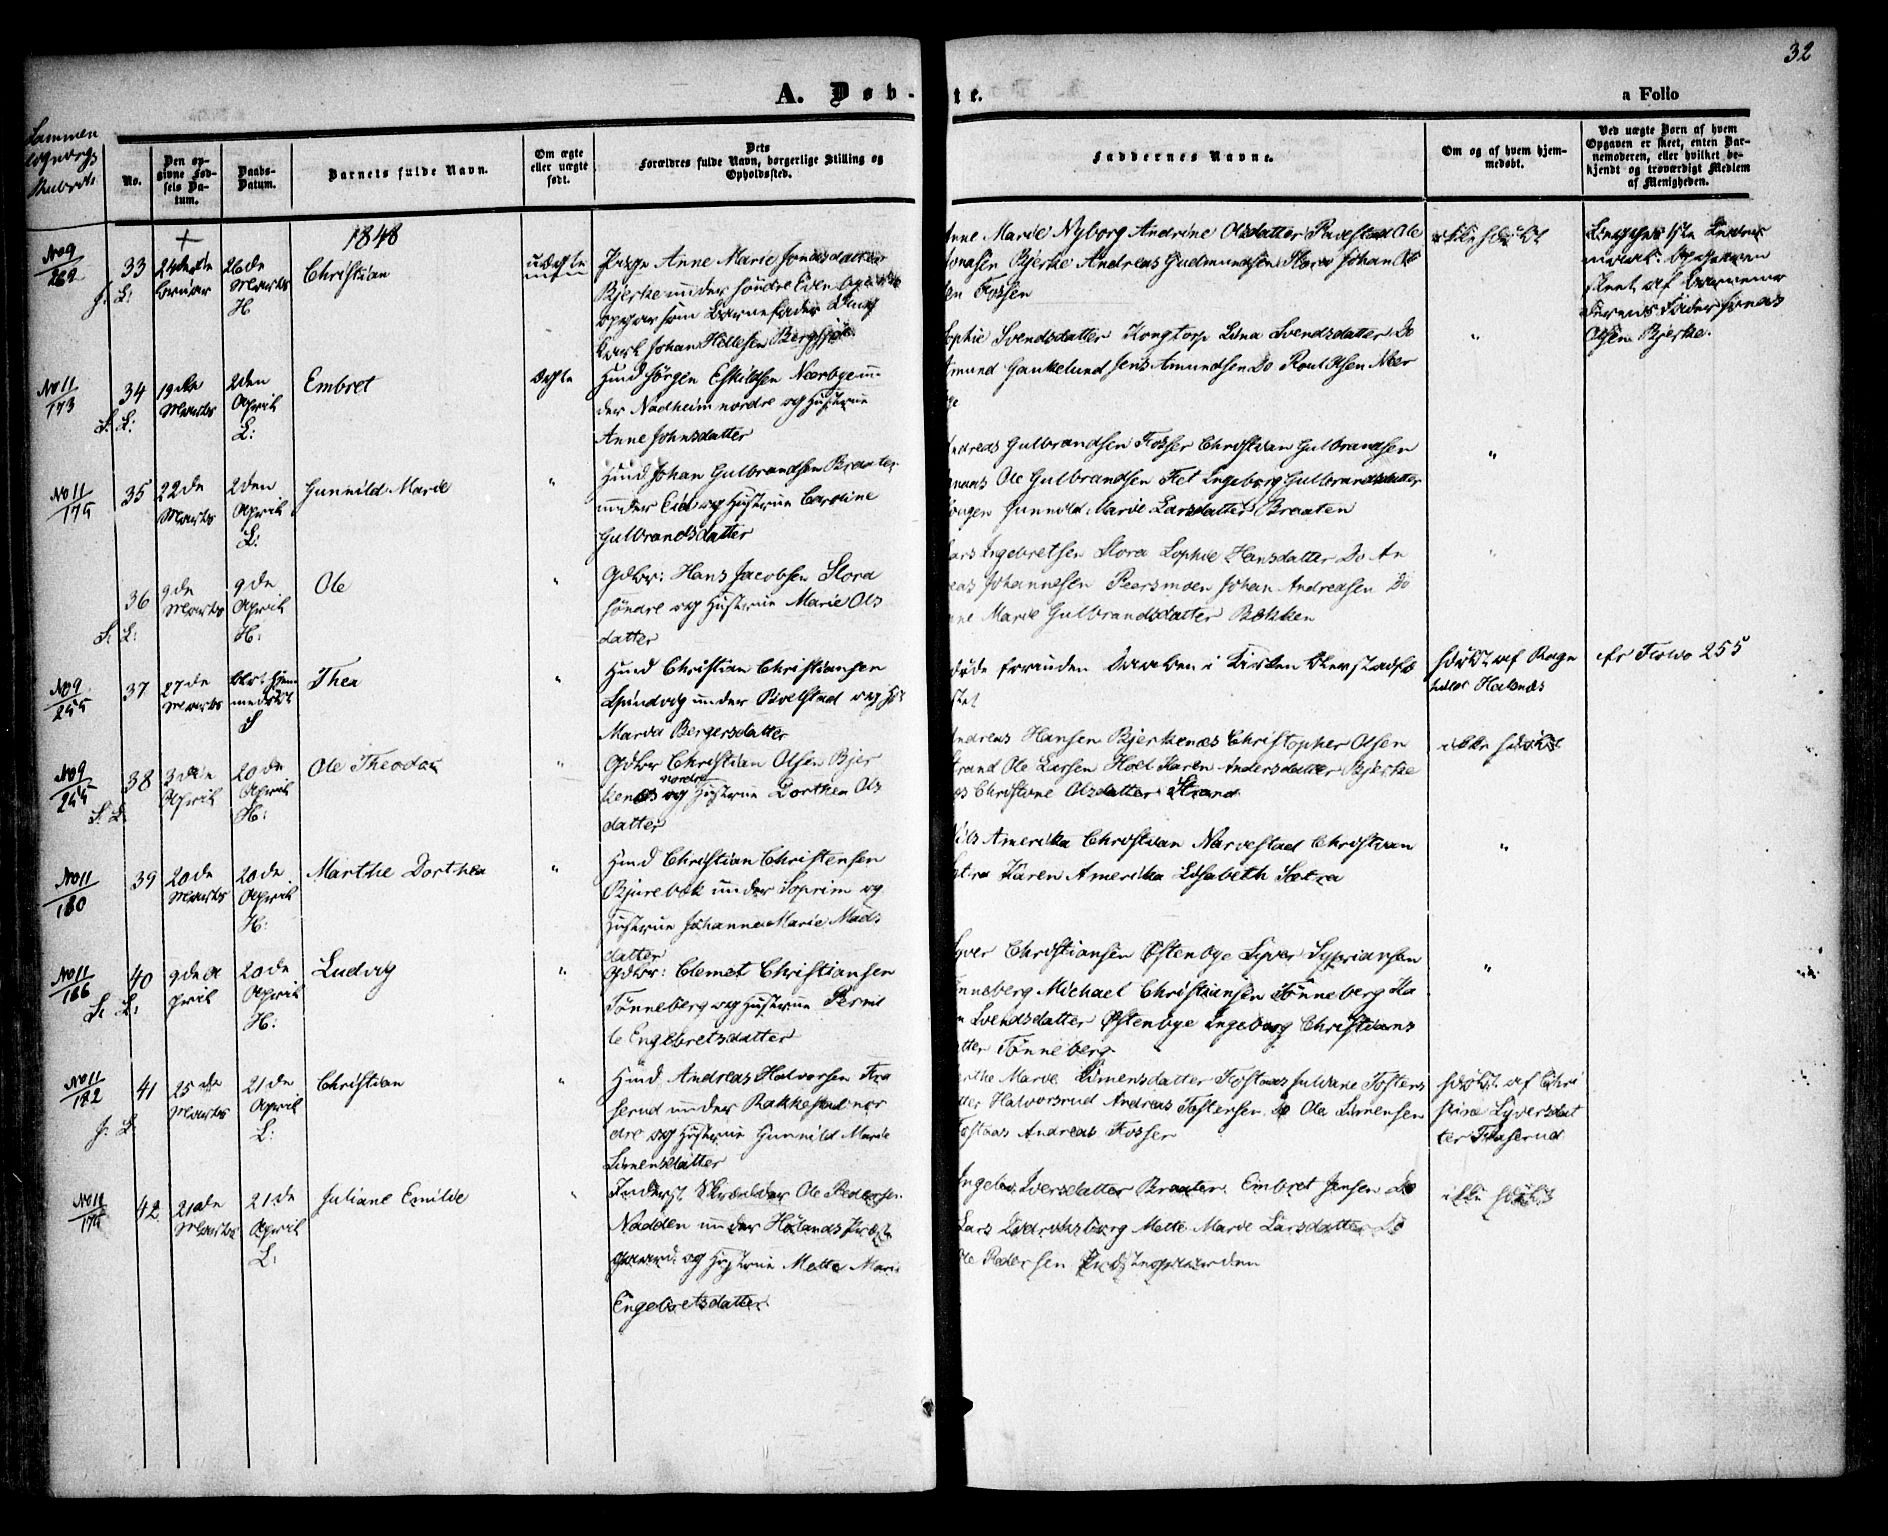 32
A. Døb-
te.
a Folio
Sammen
No.
Den op-
givne Fød-
sels Da-
tum.
Daabs-
Datum.
Barnets fulde Navn.
Om ægte
eller uægte
født.
Dets
Forældres fulde Navn, borgerlige Stilling og
Opholdssted.
Faddernes Navne.
Om og af hvem hjem-
medøbt.
Ved uægte Børn af hvem
Opgaven er skeet, enten Bar-
nemoderen, eller hvilket be-
kjendt og troværdigt Medlem
af Menigheden.
1848
No 9
269
33
26de
Marts
H
Christian
uægte
Pige Anne Marie Jonasdatter
Bjerke under søndre Eid
opgav som Barnefader
Karl Johan Hellesen
Anne Marie Nyborg Andrine Olsdatter Ole
Jonasen Bjerke Andreas Gudmundsen Slora Johan
Fossen
skeet af Barnemo
derens Fader Jonas
Olsen Bjerke.
No 11
173
34
19de
Marts
2den
April
L:
Embret
ægte
Huusd Jørgen Eskildsen Nærbye un
der Nadheim nordre og Hustrue
Anne Johnsdatter
Sophie Svendsdatter Kongtorp Lina Svendsdatter Do
Amund Gankelund Jens Amundsen Do Poul Olsen Nær
"
No 11
175
35
22de
Marts
2den
April
L:
Gunnild Marie
"
Huusd Johan Gulbrandsen Braaten
under Eid og Hustrue Caroline
Gulbrandsdatter
Andreas Gulbrandsen Fosser Christian Gulbrandsen
Ole Gulbrandsen Flet Ingeborg Gulbrandsdatter
Gunnild Marie Larsdatter Braaten
"
36
9de
Marts
9de
April
H:
Ole
"
Gdbr: Hans Jacobsen Slora
søndre og Hustrue Marie Ols
datter
Lars Ingebretsen Slora Sophie Hansdatter Do An
dreas Johannesen Peersmoen Johan Andreasen Do
Anne Marie Gulbrandsdatter Bakken
"
No 9
255
37
27de
Marts
Thea
"
Huusd Christian Christiansen
under Bøelstad og H
Maria Bergersdatter
døde forinden Daaben i Kirken
hdøbt af Ragn
hild
cfr Folio 255
No 9
255
38
3die
April
20de
April
H:
Ole Theodor
"
Gdbr Christian Olsen Bjer
kenæs nordre og Hustrue Dorthea Ols
datter
Andreas Hansen Bjerkenæs Christopher Olsen
Strand Ole Larsen Hoel Karen Andersdatter Bjerke
næs Christine Olsdatter Strand
ikke hdøbt
No 11
180
39
20de
Marts
20de
April
H:
Marthe Dorthea
"
Huusd Christian Christensen
Bjurebæk under Soprim og
Hustrue Johanne Marie Mads
datter
Nils Amerika Christian Narvestad Christian
Sætra Karen Amerika Elisabeth Sætra
"
No 11
166
40
9de A
pril
20de
April
H:
Ludvig
"
Gdbr: Clemet Christiansen
Tønneberg og Hustrue Pernil
le Engebretsdatter
Syver Christiansen Østenbye Syver Syprianson
Tønneberg Michael Christiansen Tønneberg Ka
Svendsdatter Østenbye Ingeborg Christians
datter Tønneberg
"
No 11
182
41
25de
Marts
21de
April
L:
Christian
"
Huusd Andreas Halvorsen Fra
serud under Rakkestad nor
dre og Hustrue Gunnild Marie
Simensdatter
Marthe Marie Simensdatter Fostaas Juliane Tostens
datter Halvorsrud Andreas Tostensen Do Ole Simensen
Fostaas Andreas Fosser
hdøbt af Chri
stine Syversdat
ter Fraserud
42
21de
Marts
21de
April
L:
Juliane Emilie
"
Inderst Skrædder Ole Pedersen
Nadden under Hølands Præste
gaard og Hustrue Mette Marie
Engebretsdatter
Ingeb. Iversdatter Braaten Embret Jensen Do
Lars Fredriksborg Mette Marie Larsdatter Do
Ole Pedersen Præstegaarden
ikke hdøbt